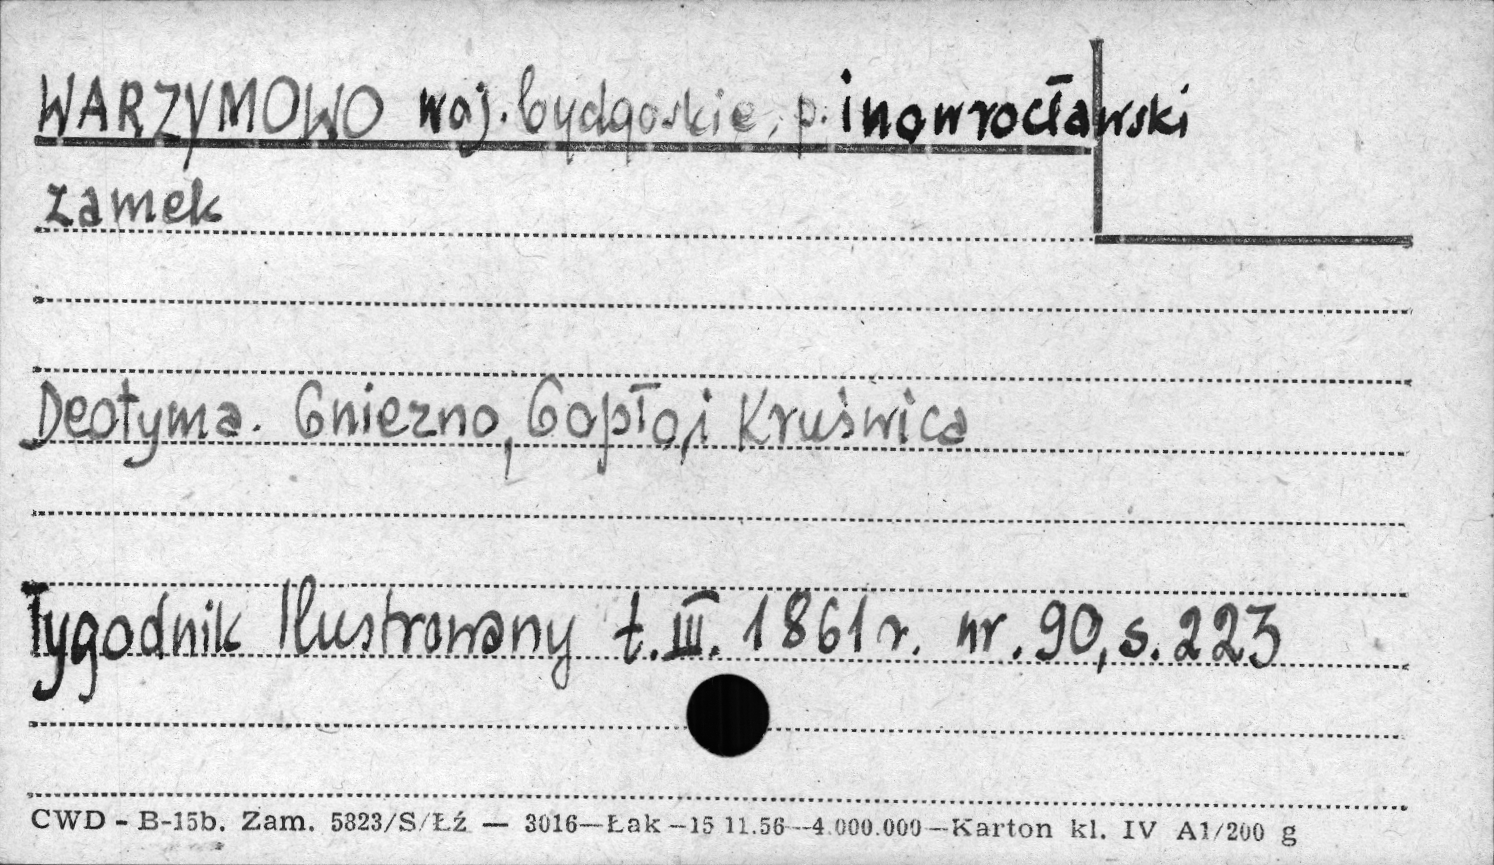 WARZYMOWO woj. bydgoskie, p. inowrocławski
zamek
Deotyma. Gniezno, Gopło, i Kruświca
Tygodnik Ilustrowany t. III. 1861 r. nr. 90, s. 223
CWD - B-15b. Zam. 5823/S/Łź — 3016—Łak—15 11.56—4.000.000—Karton kl. IV A1/200 g